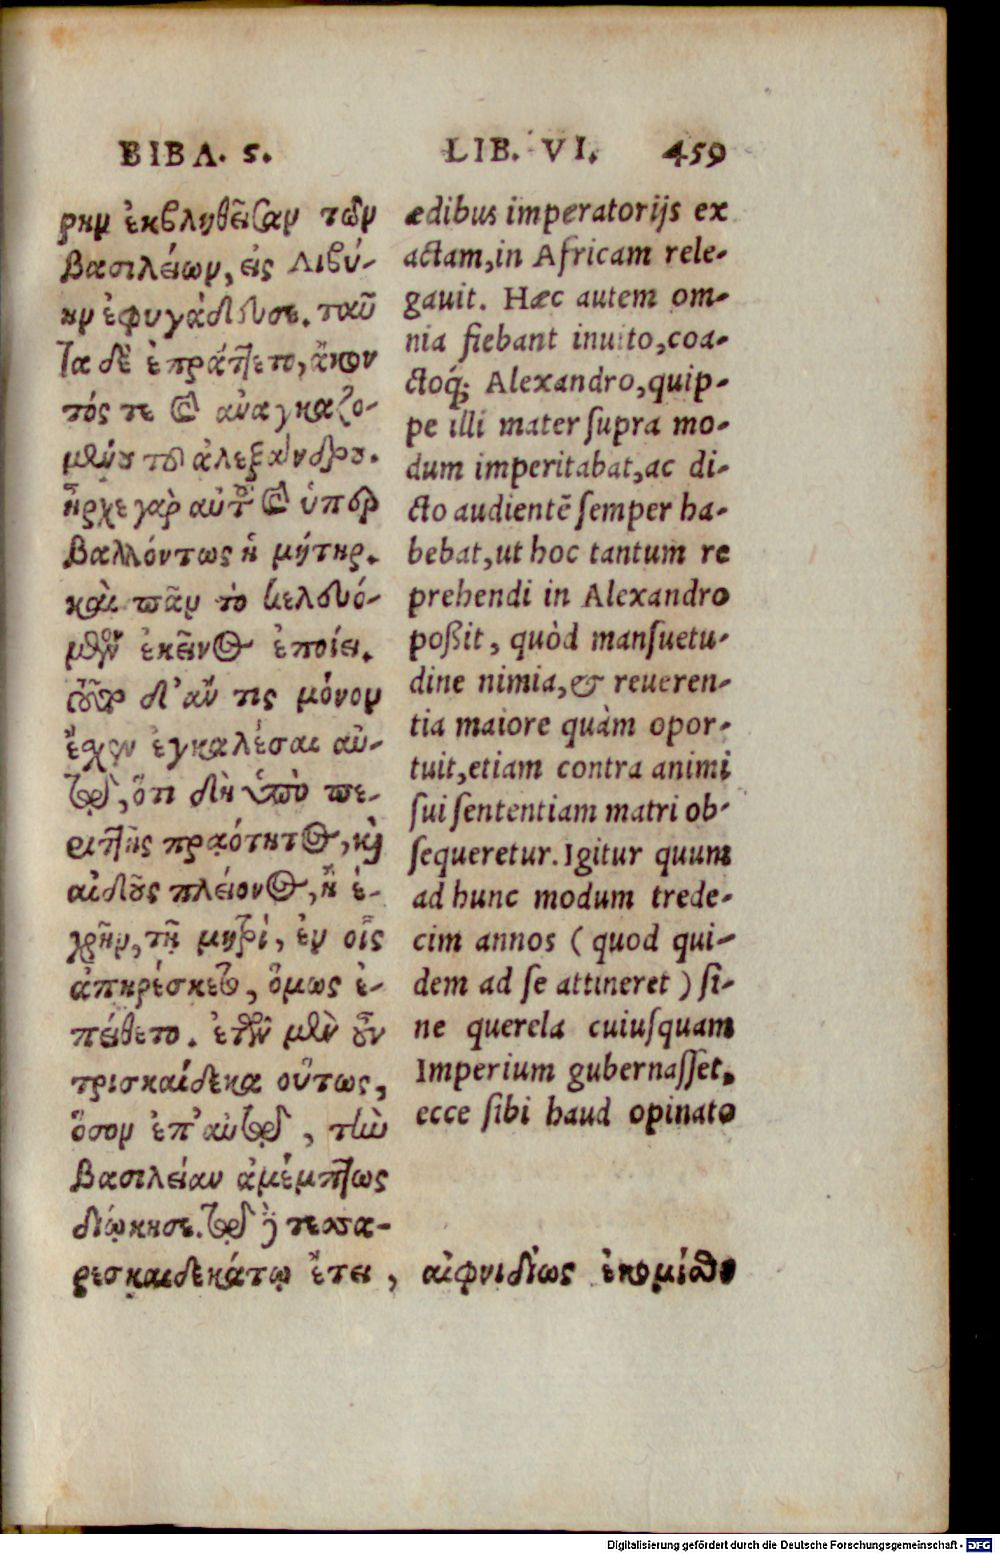 ΒΙΒΛ. ς.
ρημ ἐκβληθεῖσαν τῶν
βασιλείων, εἰς Λιβύ-
ην ἐφυγάδευσε. ταῦ
τα δὲ ἐπράττετο, ἄκον
τός τε καὶ ἀναγκαζο-
μένου τοῦ ἀλεξάνδρου.
ἦρχε γὰρ αὐτοῦ καὶ ὑπερ
βαλλόντως ἡ μήτηρ.
καὶ πᾶν τὸ κελευό-
μενον ἐκεῖνος ἐποίει.
τοῦτο δ' ἄν τις μόνον
ἔχοι ἐγκαλέσαι αὐ-
τῷ, ὅτι δὴ ὑπὸ πε-
ριττῆς πραότητος, καὶ
αἰδοῦς πλείονος, ἢ ἐ-
χρῆν, τῇ μητρί, ἐν οἷς
ἀπηρέσκετο, ὅμως ἐ-
πείθετο. ἐτῶν μὲν οὖν
τρισκαίδεκα οὕτως,
ὅσον ἐπ' αὐτῷ, τὴν
βασιλείαν ἀμέμπτως
διῴκησε. τῷ δὲ τεσσα-
ρεσκαιδεκάτῳ ἔτει, αἰφνιδίως ἐκομίσθη
LIB. VI. 459
ædibus imperatorijs ex
actam, in Africam rele-
gauit. Hæc autem om-
nia fiebant inuito, coa-
ctoq́; Alexandro, quip-
pe illi mater supra mo-
dum imperitabat, ac di-
cto audientē semper ha-
bebat, ut hoc tantum re
prehendi in Alexandro
poßit, quòd mansuetu-
dine nimia, & reueren-
tia maiore quàm opor-
tuit, etiam contra animi
sui sententiam matri ob-
sequeretur. Igitur quum
ad hunc modum trede-
cim annos (quod qui-
dem ad se attineret) si-
ne querela cuiusquam
Imperium gubernasset,
ecce sibi haud opinato
Digitalisierung gefördert durch die Deutsche Forschungsgemeinschaft - DFG